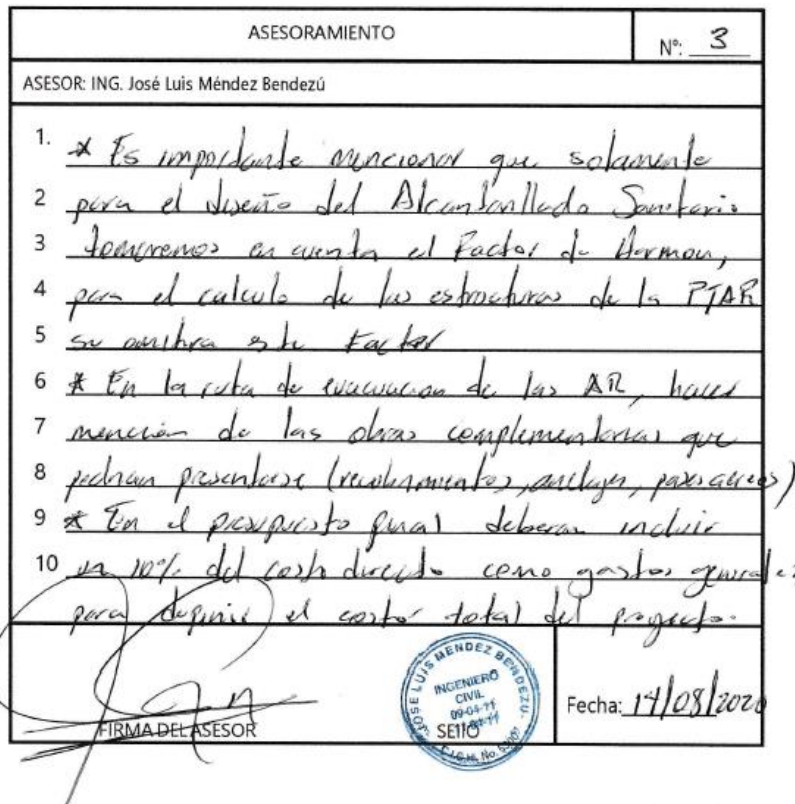 ASESORAMIENTO
N°: 3
ASESOR: ING. José Luis Méndez Bendezú
1. * Es importante mencionar que solamente
2 para el diseño del Alcantarillado Sanitario
3 tomaremos en cuenta el Factor de Harmon,
4 para el calculo de las estructuras de la PTAR
5 se omitira este Factor
6 * En la ruta de evacuacion de las AR, hacer
7 mención de las obras complementarias que
8 podrian presentarse (recubrimientos, anclajes, pasos aereos)
9 * En el presupuesto final deberan incluir
10 un 10% del costo directo como gastos generales
para definir el costo total del proyecto.
FIRMA DEL ASESOR
JOSE LUIS MENDEZ BENDEZU
INGENIERO
CIVIL
SEllO
C.I.C.H. No.
Fecha: 14/08/2020